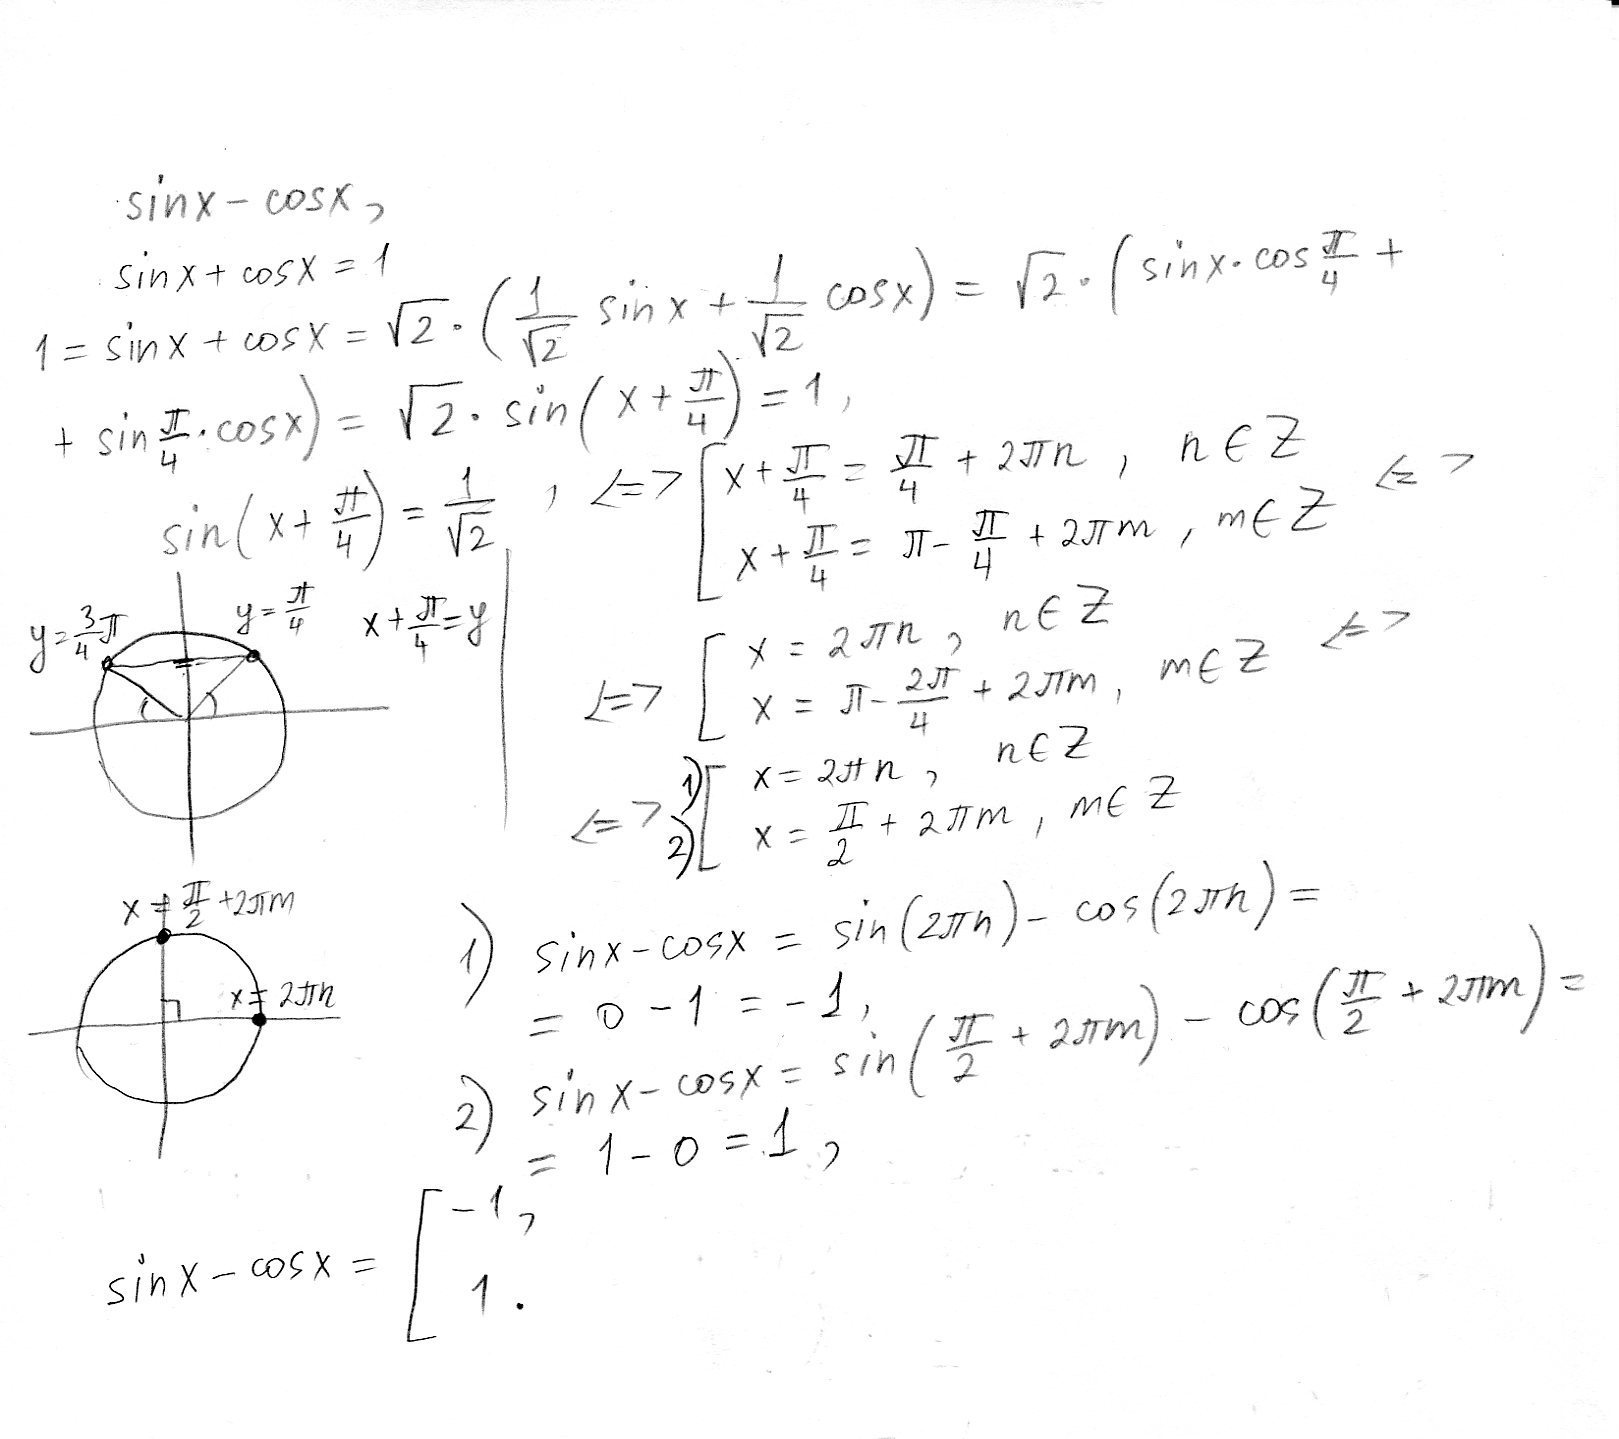 sinx - cosx,
sinx + cosx = 1
1 = sinx + cosx = √2 · (1/√2 sinx + 1/√2 cosx) = √2 · (sinx · cos π/4 +
+ sin π/4 · cosx) = √2 · sin(x + π/4) = 1,
sin(x + π/4) = 1/√2 , <=> [ x + π/4 = π/4 + 2πn , n ∈ Z
x + π/4 = π - π/4 + 2πm , m ∈ Z <=>
y = 3/4 π y = π/4 x + π/4 = y
<=> [ x = 2πn , n ∈ Z
x = π - 2π/4 + 2πm , m ∈ Z <=>
<=> 1) [ x = 2πn , n ∈ Z
2) x = π/2 + 2πm , m ∈ Z
x = π/2 + 2πm
x = 2πn
1) sinx - cosx = sin(2πn) - cos(2πn) =
= 0 - 1 = -1,
2) sinx - cosx = sin(π/2 + 2πm) - cos(π/2 + 2πm) =
= 1 - 0 = 1 ,
sinx - cosx = [ -1,
1.